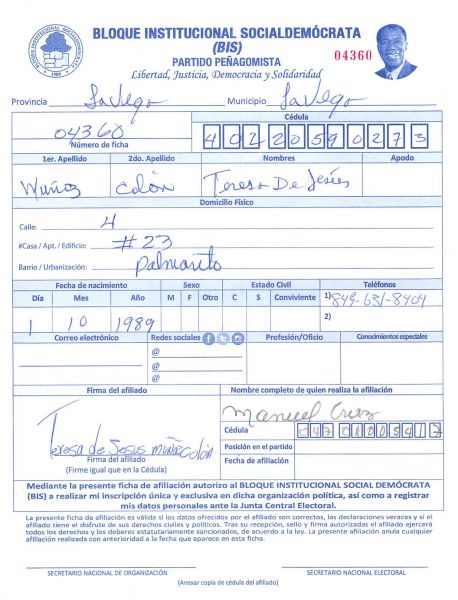 BLOQUE INSTITUCIONAL SOCIALDEMÓCRATA
1989
BLOQUE INSTITUCIONAL SOCIALDEMÓCRATA
(BIS)
PARTIDO PEÑAGOMISTA
Libertad, Justicia, Democracia y Solidaridad
04360
Provincia La Vega Municipio La Vega
04360
Número de ficha
Cédula
40220590273
1er. Apellido 2do. Apellido Nombres Apodo
Muñoz Colón Teresa De Jesús
Domicilio Físico
Calle: 4
#Casa / Apt. / Edificio: #23
Barrio / Urbanización: Palmarito
Fecha de nacimiento Sexo Estado Civil Teléfonos
Día Mes Año M F Otro C S Conviviente 1) 849-631-8404
2)
1 10 1989
Correo electrónico Redes sociales Profesión/Oficio Conocimientos especiales
@
@
@
Firma del afiliado Nombre completo de quien realiza la afiliación
Manuel Cruz
Teresa de Jesus muñoz colón
Firma del afiliado
(Firme igual que en la Cédula)
Cédula 04701005417
Posición en el partido
Fecha de afiliación
Mediante la presente ficha de afiliación autorizo al BLOQUE INSTITUCIONAL SOCIAL DEMÓCRATA
(BIS) a realizar mi inscripción única y exclusiva en dicha organización política, así como a registrar
mis datos personales ante la Junta Central Electoral.
La presente ficha de afiliación es válida si los datos ofrecidos por el afiliado son correctos, las declaraciones veraces y si el
afiliado tiene el disfrute de sus derechos civiles y políticos. Tras su recepción, sello y firma autorizados el afiliado ejercerá
todos los derechos y los deberes estatutariamente sancionados, de acuerdo a la ley. La presente afiliación anula cualquier
afiliación realizada con anterioridad a la fecha que aparece en esta ficha.
SECRETARIO NACIONAL DE ORGANIZACIÓN SECRETARIO NACIONAL ELECTORAL
(Anexar copia de cédula del afiliado)